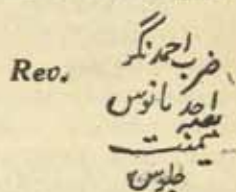 Rev.
ضرب احمدنگر
احد مانوس
میمنت
جلوس